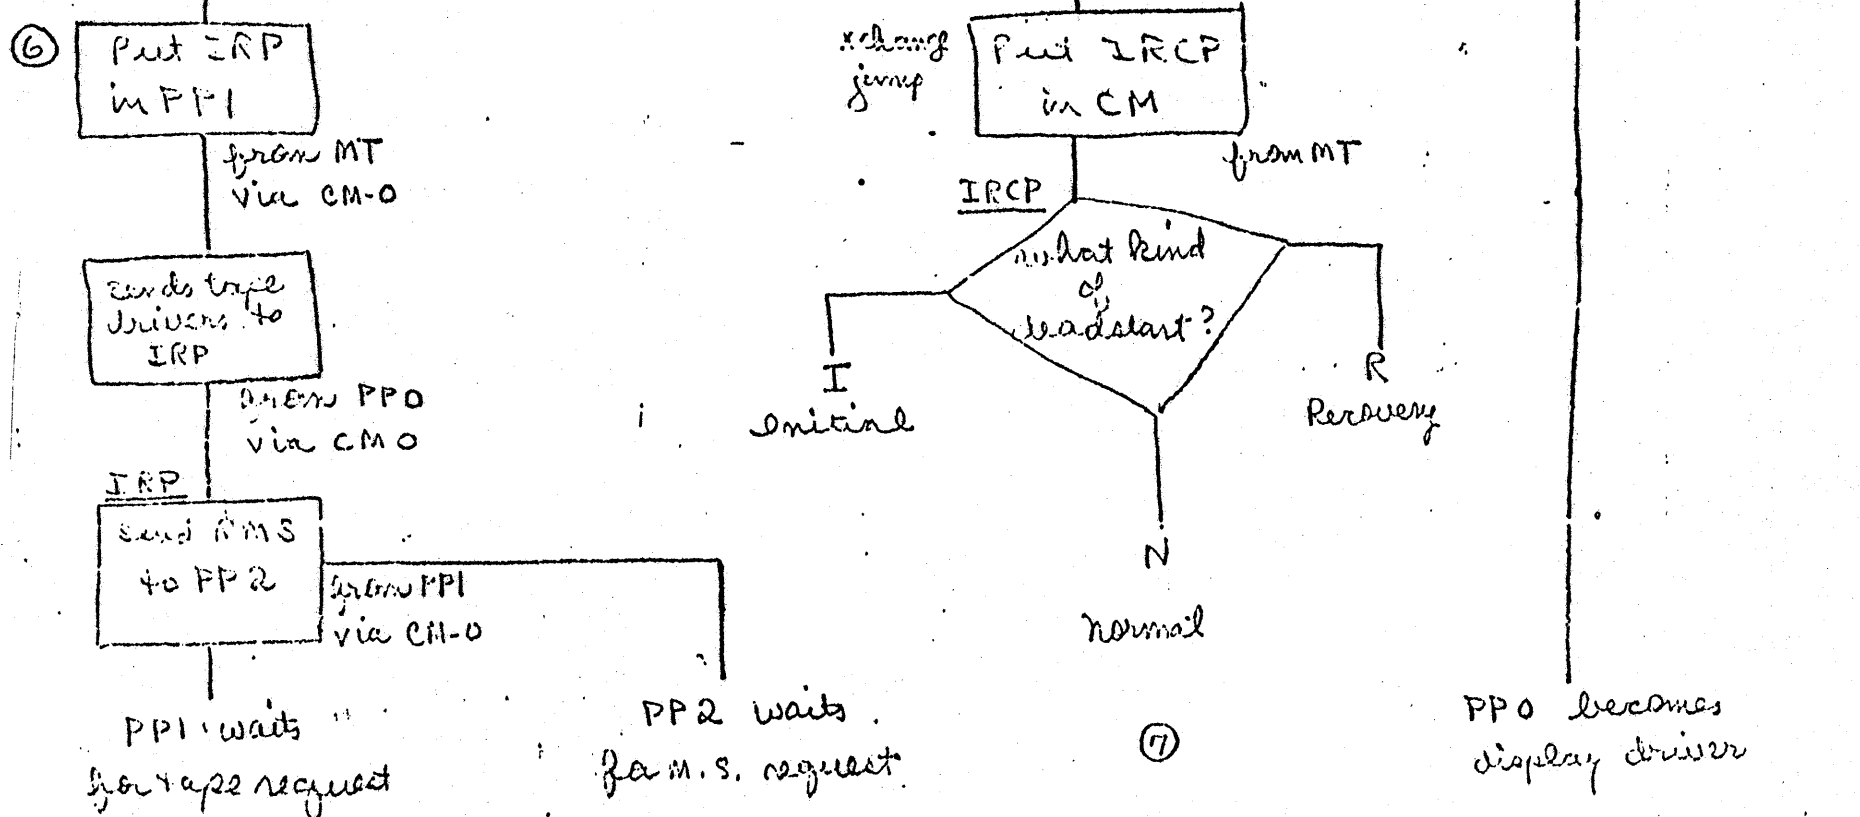 6
Put IRP
in PP1
from MT
via CM-0
sends tape
drivers to
IRP
from PP0
via CM0
IRP
send RMS
to PP2
from PP1
via CM-0
PP1 waits
for tape request
PP2 waits
for M.S. request
xchang
jump
Put IRCP
in CM
from MT
IRCP
what kind
of
deadstart?
I
Initial
R
Recovery
N
Normal
7
PP0 becomes
display driver